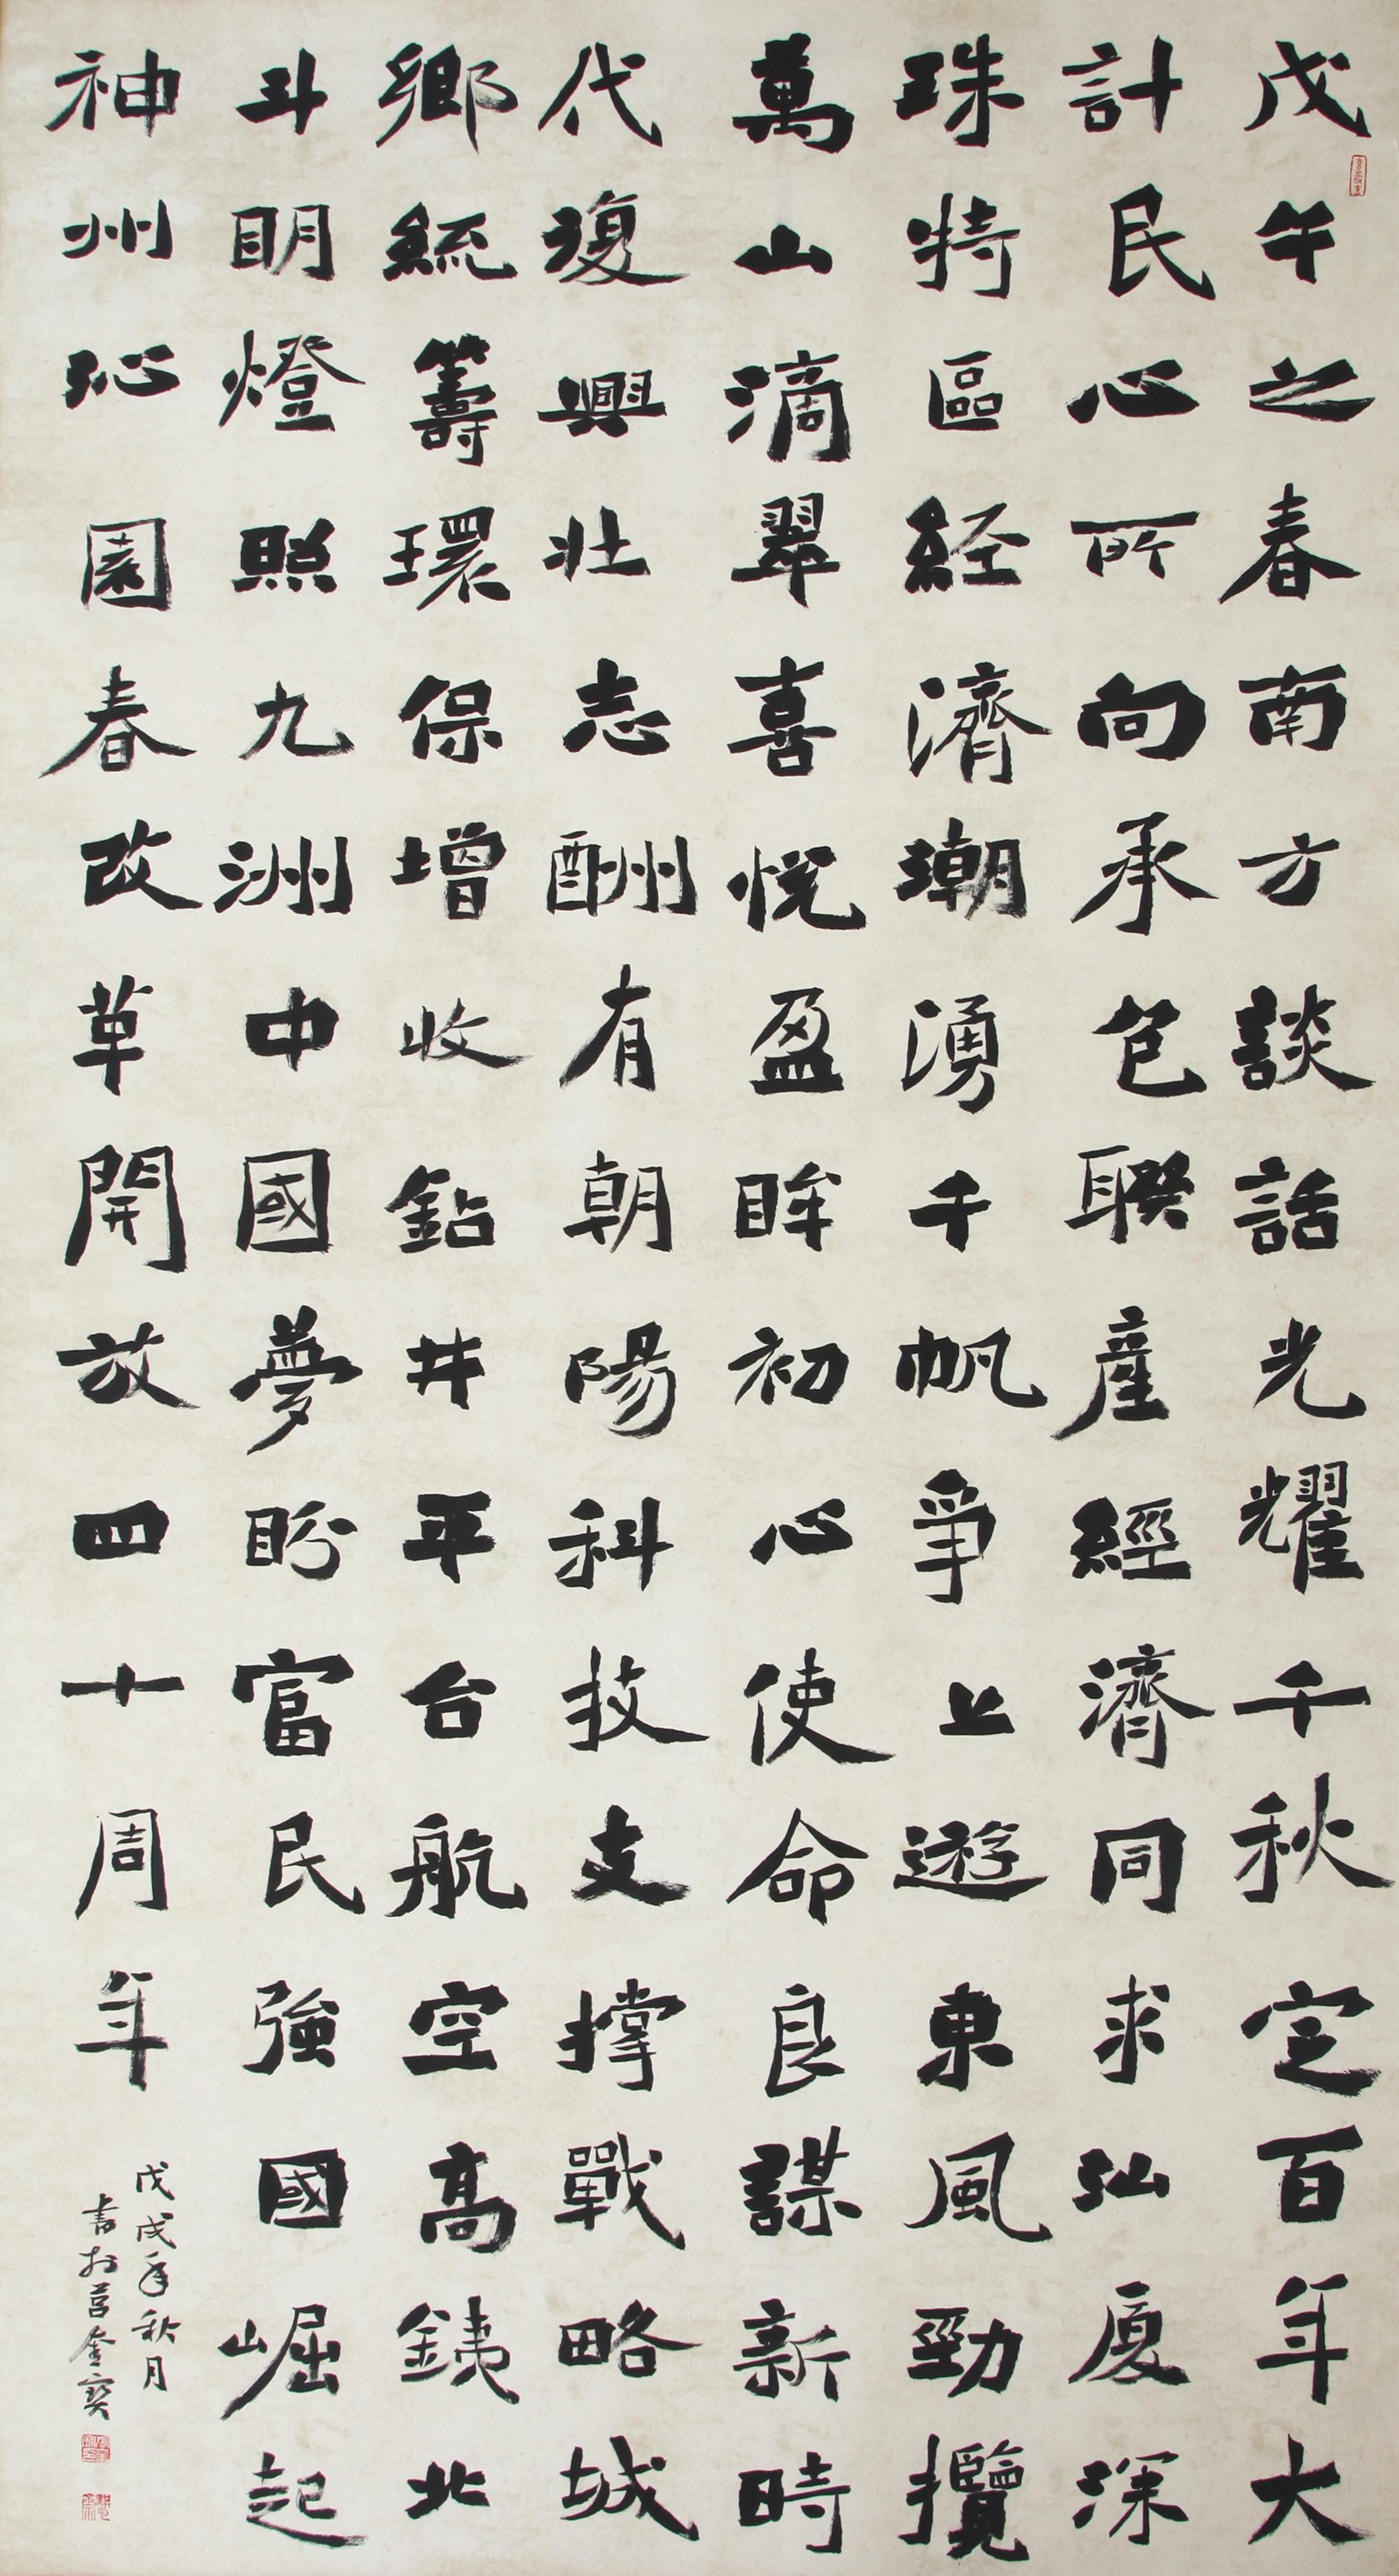 戊午之春南方談話光耀千秋定百年大
計民心所向承包聯產經濟同求汕厦深
珠特區经濟潮湧千帆爭上遊東風勁攬
萬山滴翠喜悅盈眸初心使命良謀新時
代復興壯志酬有朝陽科技支撐戰略城
鄉統籌環保增收鉆井平台航空高鐵北
斗明燈照九洲中國夢盼富民強國崛起
神州沁園春改革開放四十周年
戊戌年秋月
書於莒金寶